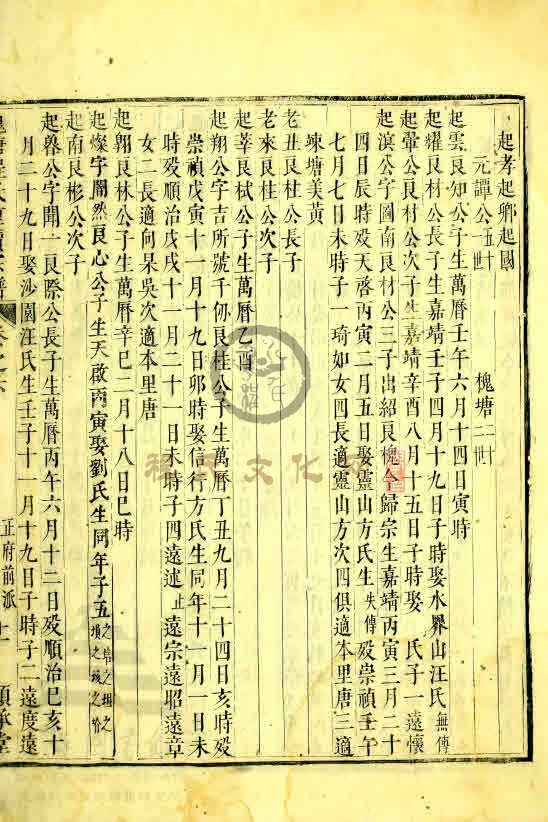 起孝起鄉起國
元譚公五十世 槐塘二十世
起雲艮知公子生萬曆壬午六月十四日寅時
起耀艮材公長子生嘉靖壬子四月十九日子時娶水界山汪氏無傳
起翬公艮材公次子生嘉靖辛酉八月十五日子時娶 氏子一遠懷
起濱公字圖南艮材公三子出紹艮槐今歸宗生嘉靖丙寅三月二十
四日辰時歿天啟丙寅二月五日娶靈山方氏生失傳歿崇禎壬午
七月七日未時子一琦如女四長適靈山方次四俱適本里唐三適
竦塘美黃
老丑艮桂公長子
老來艮桂公次子
起莘艮栻公子生萬曆乙酉
起翔公字吉所號千仞艮桂公子生萬曆丁丑九月二十四日亥時歿
崇禎戊寅十一月十九日卯時娶信行方氏生同年十一月一日未
時歿順治戊戌十一月二十一日未時子四遠述止遠宗遠昭遠章
女二長適向杲吳次適本里唐
起鄂艮林公子生萬曆辛巳二月十八日巳時
起燦字闇然艮心公子生天啟丙寅娶劉氏生同年子五之信之相之
起南艮彬公次子
起魯公字聞一艮際公長子生萬曆丙午六月十二日歿順治己亥十
月二十九日娶沙園汪氏生壬子十一月十九日子時子二遠度遠
正府前派 十一 順承堂